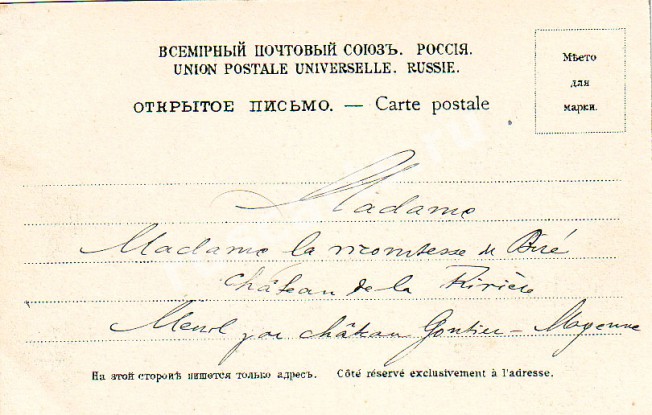 ВСЕМІРНЫЙ ПОЧТОВЫЙ СОЮЗЪ. РОССІЯ.
UNION POSTALE UNIVERSELLE. RUSSIE.
ОТКРЫТОЕ ПИСЬМО. — Carte postale
Мѣсто
для
марки.
Madame
Madame la vicomtesse de
château de la Rivière
Menil par château Gontier – Mayenne
На этой сторонѣ пишется только адресъ. Côté réservé exclusivement à l'adresse.